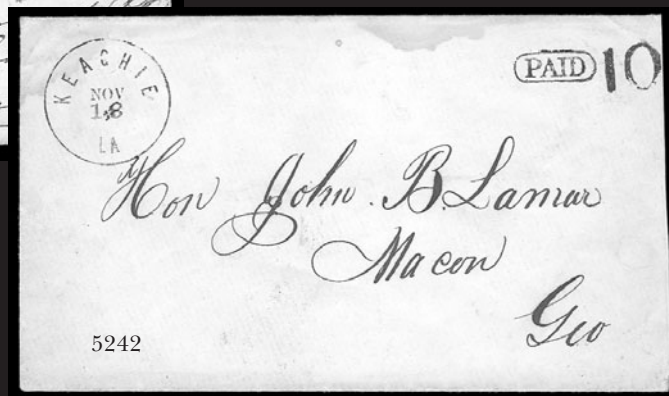 KEACHIE
NOV
18
LA
PAID 10
Hon John B. Lamar
Macon
Geo
5242